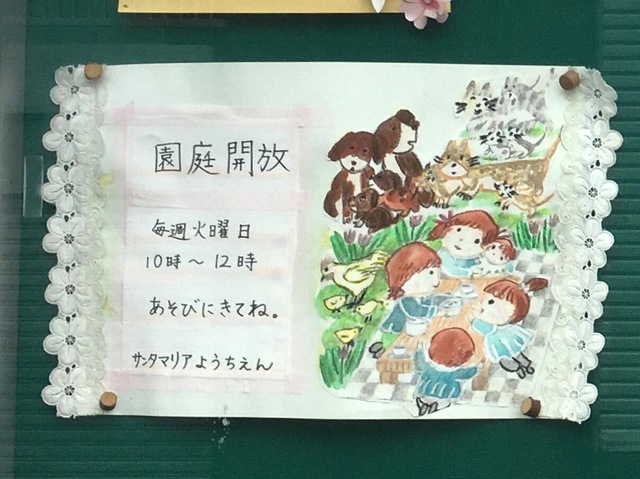 園庭開放
毎週火曜日
10時～12時
あそびにきてね。
サンタマリアようちえん